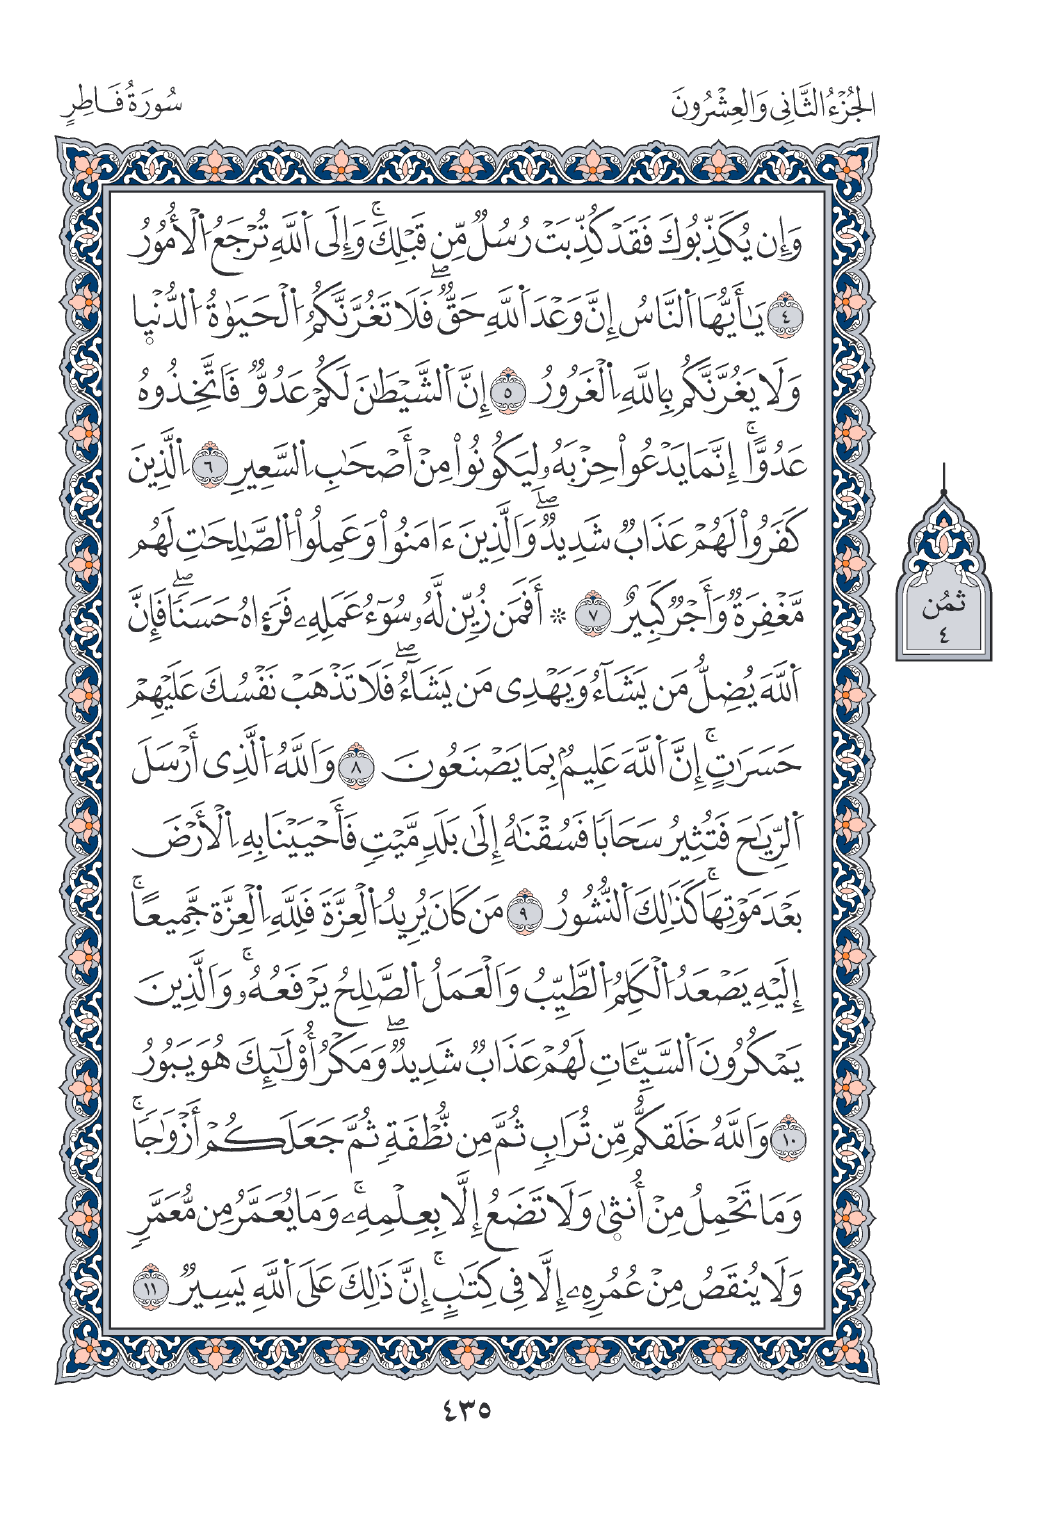 الجُزْءُ الثَّانِى وَالعِشْرُونَ
سُورَةُ فَاطِرٍ
وَإِن يُكَذِّبُوكَ فَقَدْ كُذِّبَتْ رُسُلٌ مِّن قَبْلِكَۚ وَإِلَى اَ۬للَّهِ تُرْجَعُ اُ۬لْأُمُورُ
٤ يَٰٓأَيُّهَا اَ۬لنَّاسُ إِنَّ وَعْدَ اَ۬للَّهِ حَقٌّۖ فَلَا تَغُرَّنَّكُمُ اُ۬لْحَيَوٰةُ اُ۬لدُّنْيٜا
وَلَا يَغُرَّنَّكُم بِاللَّهِ اِ۬لْغَرُورُ ٥ إِنَّ اَ۬لشَّيْطَٰنَ لَكُمْ عَدُوٌّ فَاتَّخِذُوهُ
عَدُوًّاۚ إِنَّمَا يَدْعُواْ حِزْبَهُۥ لِيَكُونُواْ مِنْ أَصْحَٰبِ اِ۬لسَّعِيرِ ٦ اِ۬لَّذِينَ
كَفَرُواْ لَهُمْ عَذَابٌ شَدِيدٌۖ وَاَلَّذِينَ ءَامَنُواْ وَعَمِلُواْ اُ۬لصَّٰلِحَٰتِ لَهُم
مَّغْفِرَةٌ وَأَجْرٌ كَبِيرٌ ٧ ۞ أَفَمَن زُيِّن لَّهُۥ سُوٓءُ عَمَلِهِۦ فَرَءِاهُ حَسَنًاۖ فَإِنَّ
اَ۬للَّهَ يُضِلُّ مَن يَشَآءُ وَيَهْدِى مَن يَشَآءُۖ فَلَا تَذْهَبْ نَفْسُكَ عَلَيْهِمْ
حَسَرَٰتٍۚ إِنَّ اَ۬للَّهَ عَلِيمٌۢ بِمَا يَصْنَعُونَ ٨ وَاَللَّهُ اُ۬لَّذِى أَرْسَلَ
اَ۬لرِّيَٰحَ فَتُثِيرُ سَحَابًا فَسُقْنَٰهُ إِلَىٰ بَلَدٍ مَّيْتٍ فَأَحْيَيْنَا بِهِ اِ۬لْأَرْضَ
بَعْدَ مَوْتِهَاۚ كَذَٰلِكَ اَ۬لنُّشُورُ ٩ مَن كَانَ يُرِيدُ اُ۬لْعِزَّةَ فَلِلَّهِ اِ۬لْعِزَّة جَّمِيعًاۚ
إِلَيْهِ يَصْعَدُ اُ۬لْكَلِمُ اُ۬لطَّيِّبُ وَاَلْعَمَلُ اُ۬لصَّٰلِحُ يَرْفَعُهُۥۚ وَاَلَّذِينَ
يَمْكُرُونَ اَ۬لسَّيِّـَٔاتِ لَهُمْ عَذَابٌ شَدِيدٌۖ وَمَكْرُ أُوْلَٰٓئِكَ هُوَ يَبُورُ
١٠ وَاَللَّهُ خَلَقكُّم مِّن تُرَابٍ ثُمَّ مِن نُّطْفَةٍ ثُمَّ جَعَلَكُمْ أَزْوَٰجًاۚ
وَمَا تَحْمِلُ مِنْ أُنثٜىٰ وَلَا تَضَعُ إِلَّا بِعِلْمِهِۦۚ وَمَا يُعَمَّرُ مِن مُّعَمَّرٍ
وَلَا يُنقَصُ مِنْ عُمُرِهِۦٓ إِلَّا فِى كِتَٰبٍۚ إِنَّ ذَٰلِكَ عَلَى اَ۬للَّهِ يَسِيرٌ ١١
ثمُن
٤
٤٣٥